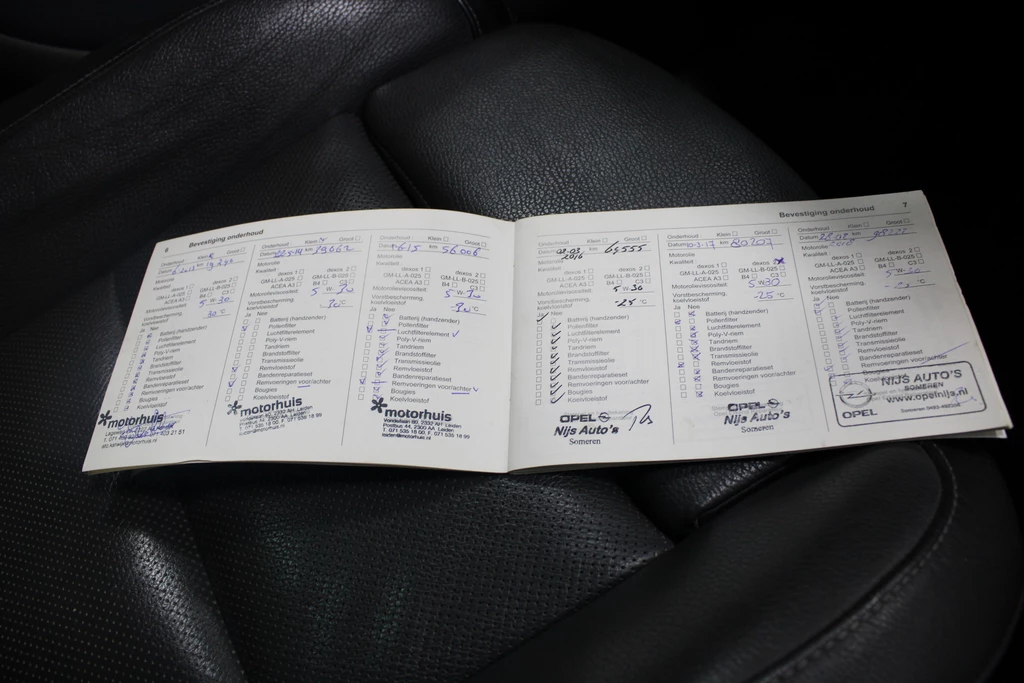 6 Bevestiging onderhoud
Onderhoud Klein Groot
Datum km
Motorolie
Kwaliteit
dexos 1 dexos 2
GM-LL-A-025 GM-LL-B-025
ACEA A3 B4 C3
Motorolieviscositeit 5 W-30
Vorstbescherming,
koelvloeistof 30 °C
Ja Nee
Batterij (handzender)
Pollenfilter
Luchtfilterelement
Poly-V-riem
Tandriem
Brandstoffilter
Transmissieolie
Remvloeistof
Bandenreparatieset
Remvoeringen voor/achter
Bougies
Koelvloeistof
motorhuis
Onderhoud Klein Groot
Datum km
Motorolie
Kwaliteit
dexos 1 dexos 2
GM-LL-A-025 GM-LL-B-025
ACEA A3 B4 C3
Motorolieviscositeit 5 W
Vorstbescherming,
koelvloeistof °C
Ja Nee
Batterij (handzender)
Pollenfilter
Luchtfilterelement
Poly-V-riem
Tandriem
Brandstoffilter
Transmissieolie
Remvloeistof
Bandenreparatieset
Remvoeringen voor/achter
Bougies
Koelvloeistof
motorhuis
Vondellaan 80, 2332 AH Leiden
Postbus 44, 2300 AA Leiden
T. 071 535 18 00 F. 071 535 18 99
leiden@motorhuis.nl
Onderhoud Klein Groot
Datum km 56.006
Motorolie
Kwaliteit
dexos 1 dexos 2
GM-LL-A-025 GM-LL-B-025
ACEA A3 B4 C3
Motorolieviscositeit 5 W
Vorstbescherming,
koelvloeistof °C
Ja Nee
Batterij (handzender)
Pollenfilter
Luchtfilterelement
Poly-V-riem
Tandriem
Brandstoffilter
Transmissieolie
Remvloeistof
Bandenreparatieset
Remvoeringen voor/achter
Bougies
Koelvloeistof
motorhuis
Vondellaan 80, 2332 AH Leiden
Postbus 44, 2300 AA Leiden
T. 071 535 18 00 F. 071 535 18 99
leiden@motorhuis.nl
Bevestiging onderhoud 7
Onderhoud Klein Groot
Datum 02-03 2016 km 64555
Motorolie
Kwaliteit
dexos 1 dexos 2
GM-LL-A-025 GM-LL-B-025
ACEA A3 B4 C3
Motorolieviscositeit 5 W 30
Vorstbescherming,
koelvloeistof -25 °C
Ja Nee
Batterij (handzender)
Pollenfilter
Luchtfilterelement
Poly-V-riem
Tandriem
Brandstoffilter
Transmissieolie
Remvloeistof
Bandenreparatieset
Remvoeringen voor/achter
Bougies
Koelvloeistof
OPEL
Nijs Auto's
Someren
Onderhoud Klein Groot
Datum 10-2-17 km 80707
Motorolie
Kwaliteit
dexos 1 dexos 2
GM-LL-A-025 GM-LL-B-025
ACEA A3 B4 C3
Motorolieviscositeit 5 W 30
Vorstbescherming,
koelvloeistof -25 °C
Ja Nee
Batterij (handzender)
Pollenfilter
Luchtfilterelement
Poly-V-riem
Tandriem
Brandstoffilter
Transmissieolie
Remvloeistof
Bandenreparatieset
Remvoeringen voor/achter
Bougies
Koelvloeistof
OPEL
Nijs Auto's
Someren
Onderhoud Klein Groot
Datum km
Motorolie
Kwaliteit
dexos 1 dexos 2
GM-LL-A-025 GM-LL-B-025
ACEA A3 B4 C3
Motorolieviscositeit 5 W-30
Vorstbescherming,
koelvloeistof °C
Ja Nee
Batterij (handzender)
Pollenfilter
Luchtfilterelement
Poly-V-riem
Tandriem
Brandstoffilter
Transmissieolie
Remvloeistof
Bandenreparatieset
Remvoeringen voor/achter
NIJS AUTO'S
SOMEREN
www.opelnijs.nl
OPEL